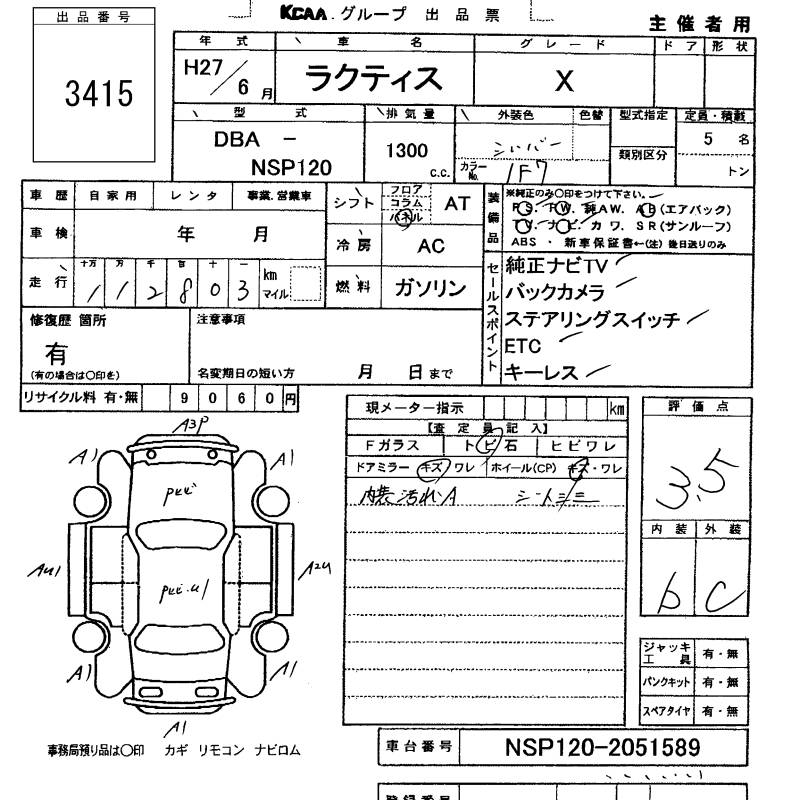 KCAA.グループ 出品票
主催者用
出品番号
3415
年式 車名 グレード ドア 形状
H27/6月 ラクティス X
型式 排気量 外装色 色替 型式指定 定員・積載
DBA - NSP120
1300 c.c.
シルバー
カラーNo. 1F7
類別区分
5 名
トン
車歴 自家用 レンタ 事業.営業車
車検 年 月
走行 十万 万 千 百 十 一
112803 km マイル
シフト フロア コラム パネル AT
冷房 AC
燃料 ガソリン
装備品
※純正のみ○印をつけて下さい。
PS. PW. 純AW. AB(エアバック)
TV. ナビ. カワ. SR(サンルーフ)
ABS ・ 新車保証書←(注) 後日送りのみ
セールスポイント
純正ナビTV
バックカメラ
ステアリングスイッチ
ETC
キーレス
修復歴 箇所
有
(有の場合は○印を)
注意事項
名変期日の短い方 月 日まで
リサイクル料 有・無 9060円
現メーター指示 km
【査定員記入】
Fガラス トビ石 ヒビワレ
ドアミラー キズ/ワレ ホイール(CP) キズ・ワレ
内装汚れA シートシミ
評価点
3.5
内装 外装
b C
ジャッキ工具 有・無
パンクキット 有・無
スペアタイヤ 有・無
A3P
A1 A1
AU1 A2U
A1 A1
A1
事務局預り品は○印 カギ リモコン ナビロム
車台番号 NSP120-2051589
登録番号